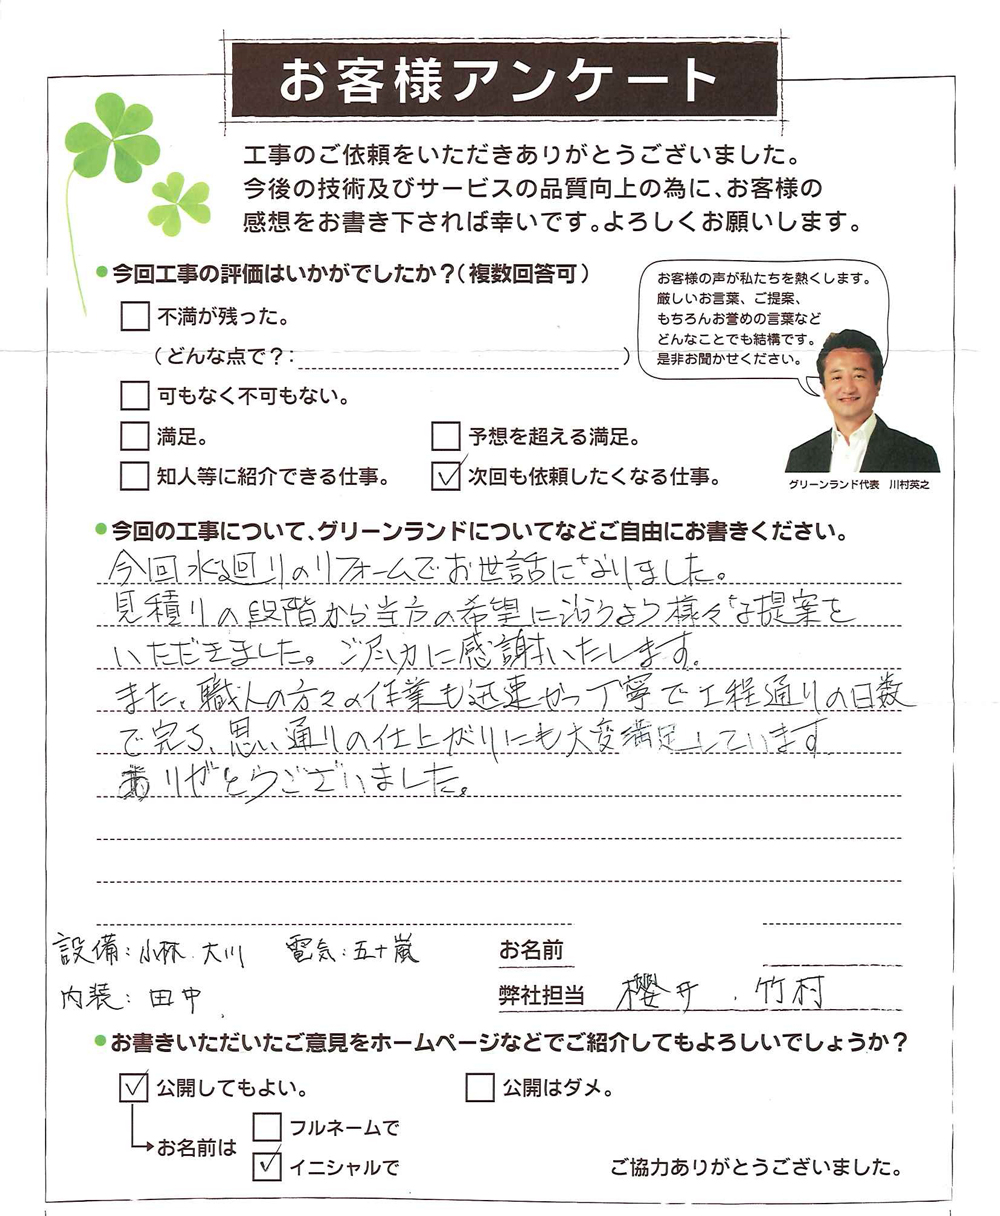 お客様アンケート
工事のご依頼をいただきありがとうございました。
今後の技術及びサービスの品質向上の為に、お客様の
感想をお書き下されば幸いです。よろしくお願いします。
●今回工事の評価はいかがでしたか？（複数回答可）
お客様の声が私たちを熱くします。
厳しいお言葉、ご提案、
もちろんお誉めの言葉など
どんなことでも結構です。
是非お聞かせください。
グリーンランド代表　川村英之
不満が残った。
（どんな点で？：　）
可もなく不可もない。
満足。　予想を超える満足。
知人等に紹介できる仕事。　☑次回も依頼したくなる仕事。
●今回の工事について、グリーンランドについてなどご自由にお書きください。
今回水廻りのリフォームでお世話になりました。
見積りの段階から当方の希望に沿うよう様々な提案を
いただきました。ご尽力に感謝いたします。
また、職人の方々の作業も迅速かつ丁寧で工程通りの日数
で完了、思い通りの仕上がりにも大変満足しています
ありがとうございました。
設備：小林 大川　電気：五十嵐　お名前
内装：田中　弊社担当　櫻井、竹村
●お書きいただいたご意見をホームページなどでご紹介してもよろしいでしょうか？
☑公開してもよい。　公開はダメ。
お名前は　フルネームで
☑イニシャルで
ご協力ありがとうございました。